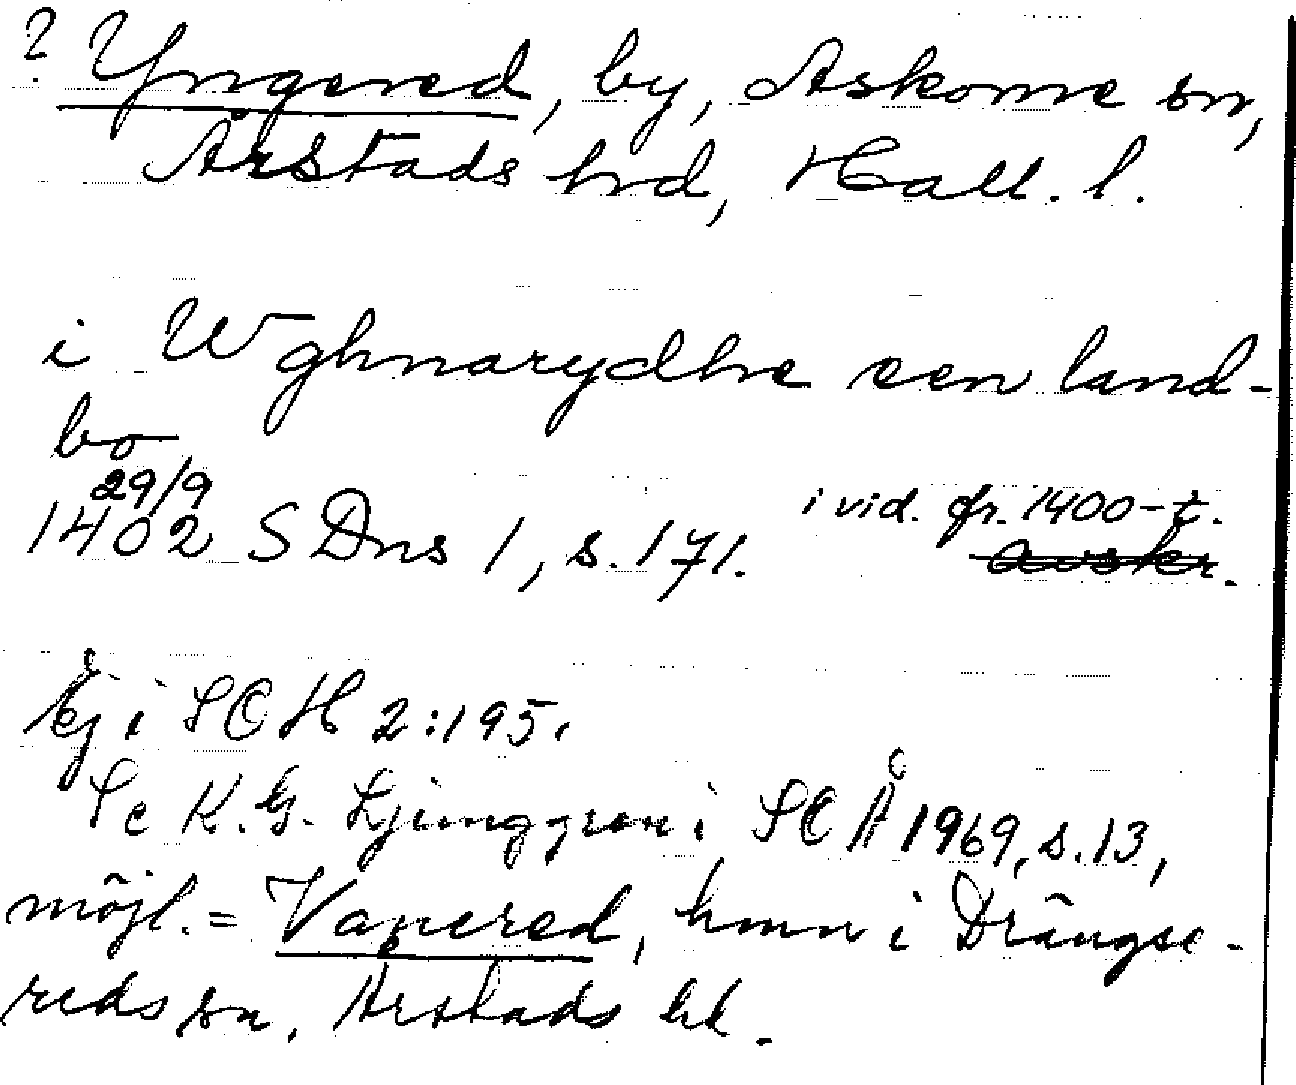 ? Yngered, by, Askome sn,
Årstads hrd, Hall. l.
i Wghnarydhe een land-
bo
29/9
1402 SDns 1, s. 171. i vid. fr. 1400-t.
avskr.
Ej i SOH 2:195.
Se K.G. Ljunggren i SOÅ 1969, s. 13,
möjl. = Vapered, hmn i Drängse-
reds sn, Årstads hd.